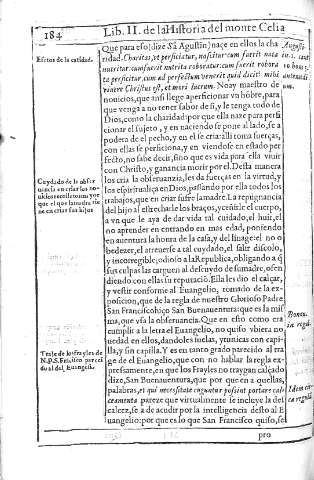 184
Lib. II. de la Historia del monte Celia
Efetos de la caridad.
Que para eso (dize Sã Agustin) naçe en ellos la cha
ridad. Charitas, vt perficiatur, nascitur: cum fuerit nata
nutritur: cum fuerit nutrita roboratur: cum fuerit robora
ta perficitur, cum ad perfectum venerit quid dicit? mihi
viuere Christus est, et mori lucrum. Noay maestro de
nouicios, que ansi llege aperficionar vn hóbre, para
que venga a no tener sabor de si, y le tenga todo de
Dios, como la charidad: por que ella naze para perfi
cionar el sujeto, y en naciendo se pone al lado, se a
podera de el pecho, y en el se cria: alli toma fuerças,
con ellas se perficiona, y en viendose en estado per
fecto, no sabe decir, sino que es vida para ella viuir
con Christo, y ganancia morir por el. Desta manera
los cria la obseruanzia, les da fuerças en la virtud, y
los espiritualiça en Dios, passando por ella todos los
trabajos, que en criar sufre la madre. La repugnancia
del hijo al estrecharle los braços, ceñirle el cuerpo,
a vn que le aya de dar vida tal cuidado, el huir, el
no aprender en entrando en mas edad, poniendo
en auentura la honra de la casa, y del linage: el no o
bedezer, el atreuerse a tal cuydado, el salir discolo,
y incorregible, odioso a la Republica, obligando a q̃
sus culpas las carguen al descuydo de su madre, ofen
diendo con ellas su reputació. Ella les dio el calçar,
y vestir conforme al Euangelio, tomado de la ex-
posicion, que de la regla de nuestro Glorioso Padre
San Francisco hiço San Buenauentura: que es la mis
ma, que vsa la obseruancia. Que en esto como era
cumplir a la letra el Euangelio, no quiso vbiera no
uedad en ellos, dandoles suelas, y tunicas con capi-
lla, y sin capilla. Y es en tanto grado parecido al tra
ge de el Euangelio, que con no hablar la regla ex-
presamente, en que los Frayles no traygan calçado
dize, San Buenauentura, que por que en a quellas,
palabras, et qui necesitate coguntur possint portare cal-
ceamenta pareçe que virtualmente se incluye la des
calcez, se a de acudir por la intelligencia desto al E
uangelio: por que es lo que San Francisco quiso, se
pro
Cuydado de la obser
uancia en criar los no
uicios
Trage de los frayles de
N.P.S. Frãcisco pareci
do al del Euangelio.
Idem